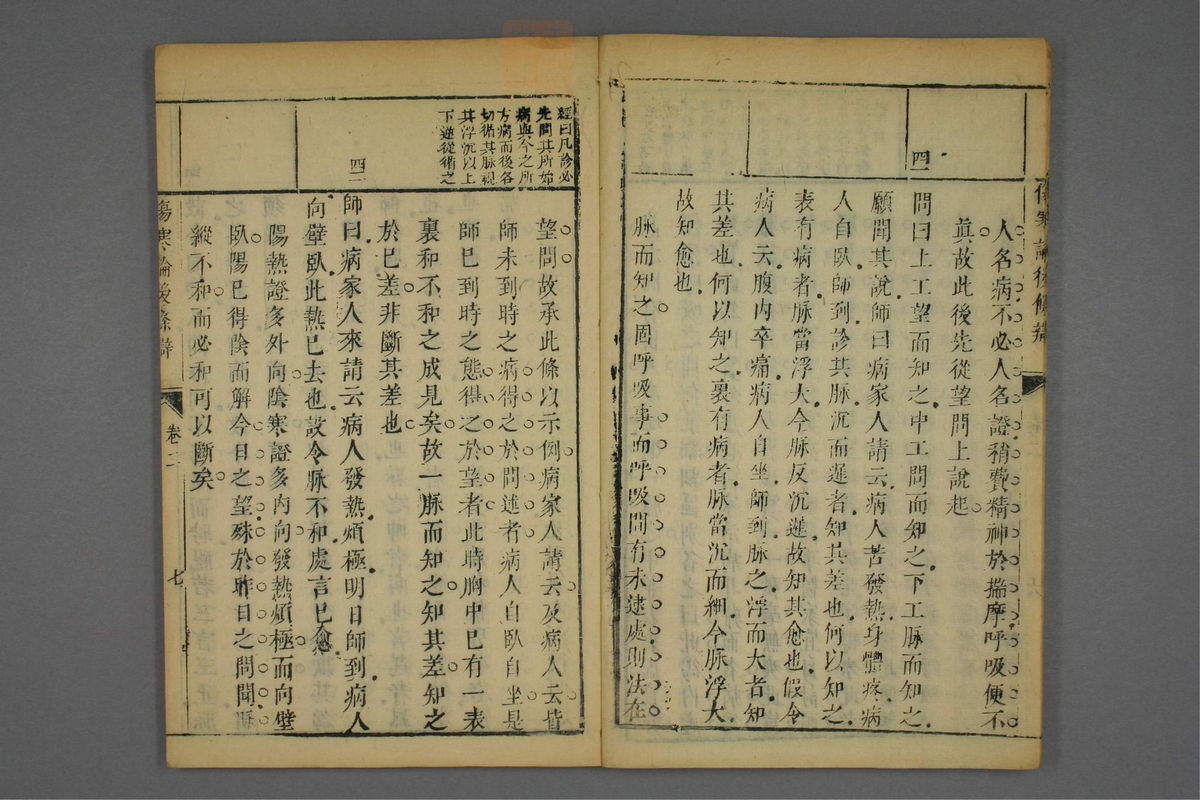 傷寒論後條辨
人名病不必人名證稍費精神於揣摩呼吸便不
眞故此後先從望問上說起
四一
問曰上工望而知之中工問而知之下工脉而知之
願聞其說師曰病家人請云病人苦發熱身體疼病
人自臥師到診其脉沉而遲者知其差也何以知之
表有病者脉當浮大今脉反沉遲故知其愈也假令
病人云腹内卒痛病人自坐師到脉之浮而大者知
其差也何以知之裏有病者脉當沉而細今脉浮大
故知愈也
脉而知之固呼吸事而呼吸間有未逮處則法在
經曰凡診必
先問其所始
病與今之所
方病而後各
切循其脉視
其浮沉以上
下逆從循之
望問故承此條以示例病家人請云及病人云皆
師未到時之病得之於問述者病人自臥自坐是
師已到時之態得之於望者此時胸中已有一表
裏和不和之成見矣故一脉而知之知其差知之
於已差非斷其差也
四二
師曰病家人來請云病人發熱煩極明日師到病人
向壁臥此熱已去也設令脉不和處言已愈
陽熱證多外向陰寒證多内向發熱煩極而向壁
臥陽已得陰而解今日之望殊於昨日之問聞脉
縱不和而必和可以斷矣
傷寒論後條辨
卷二
七